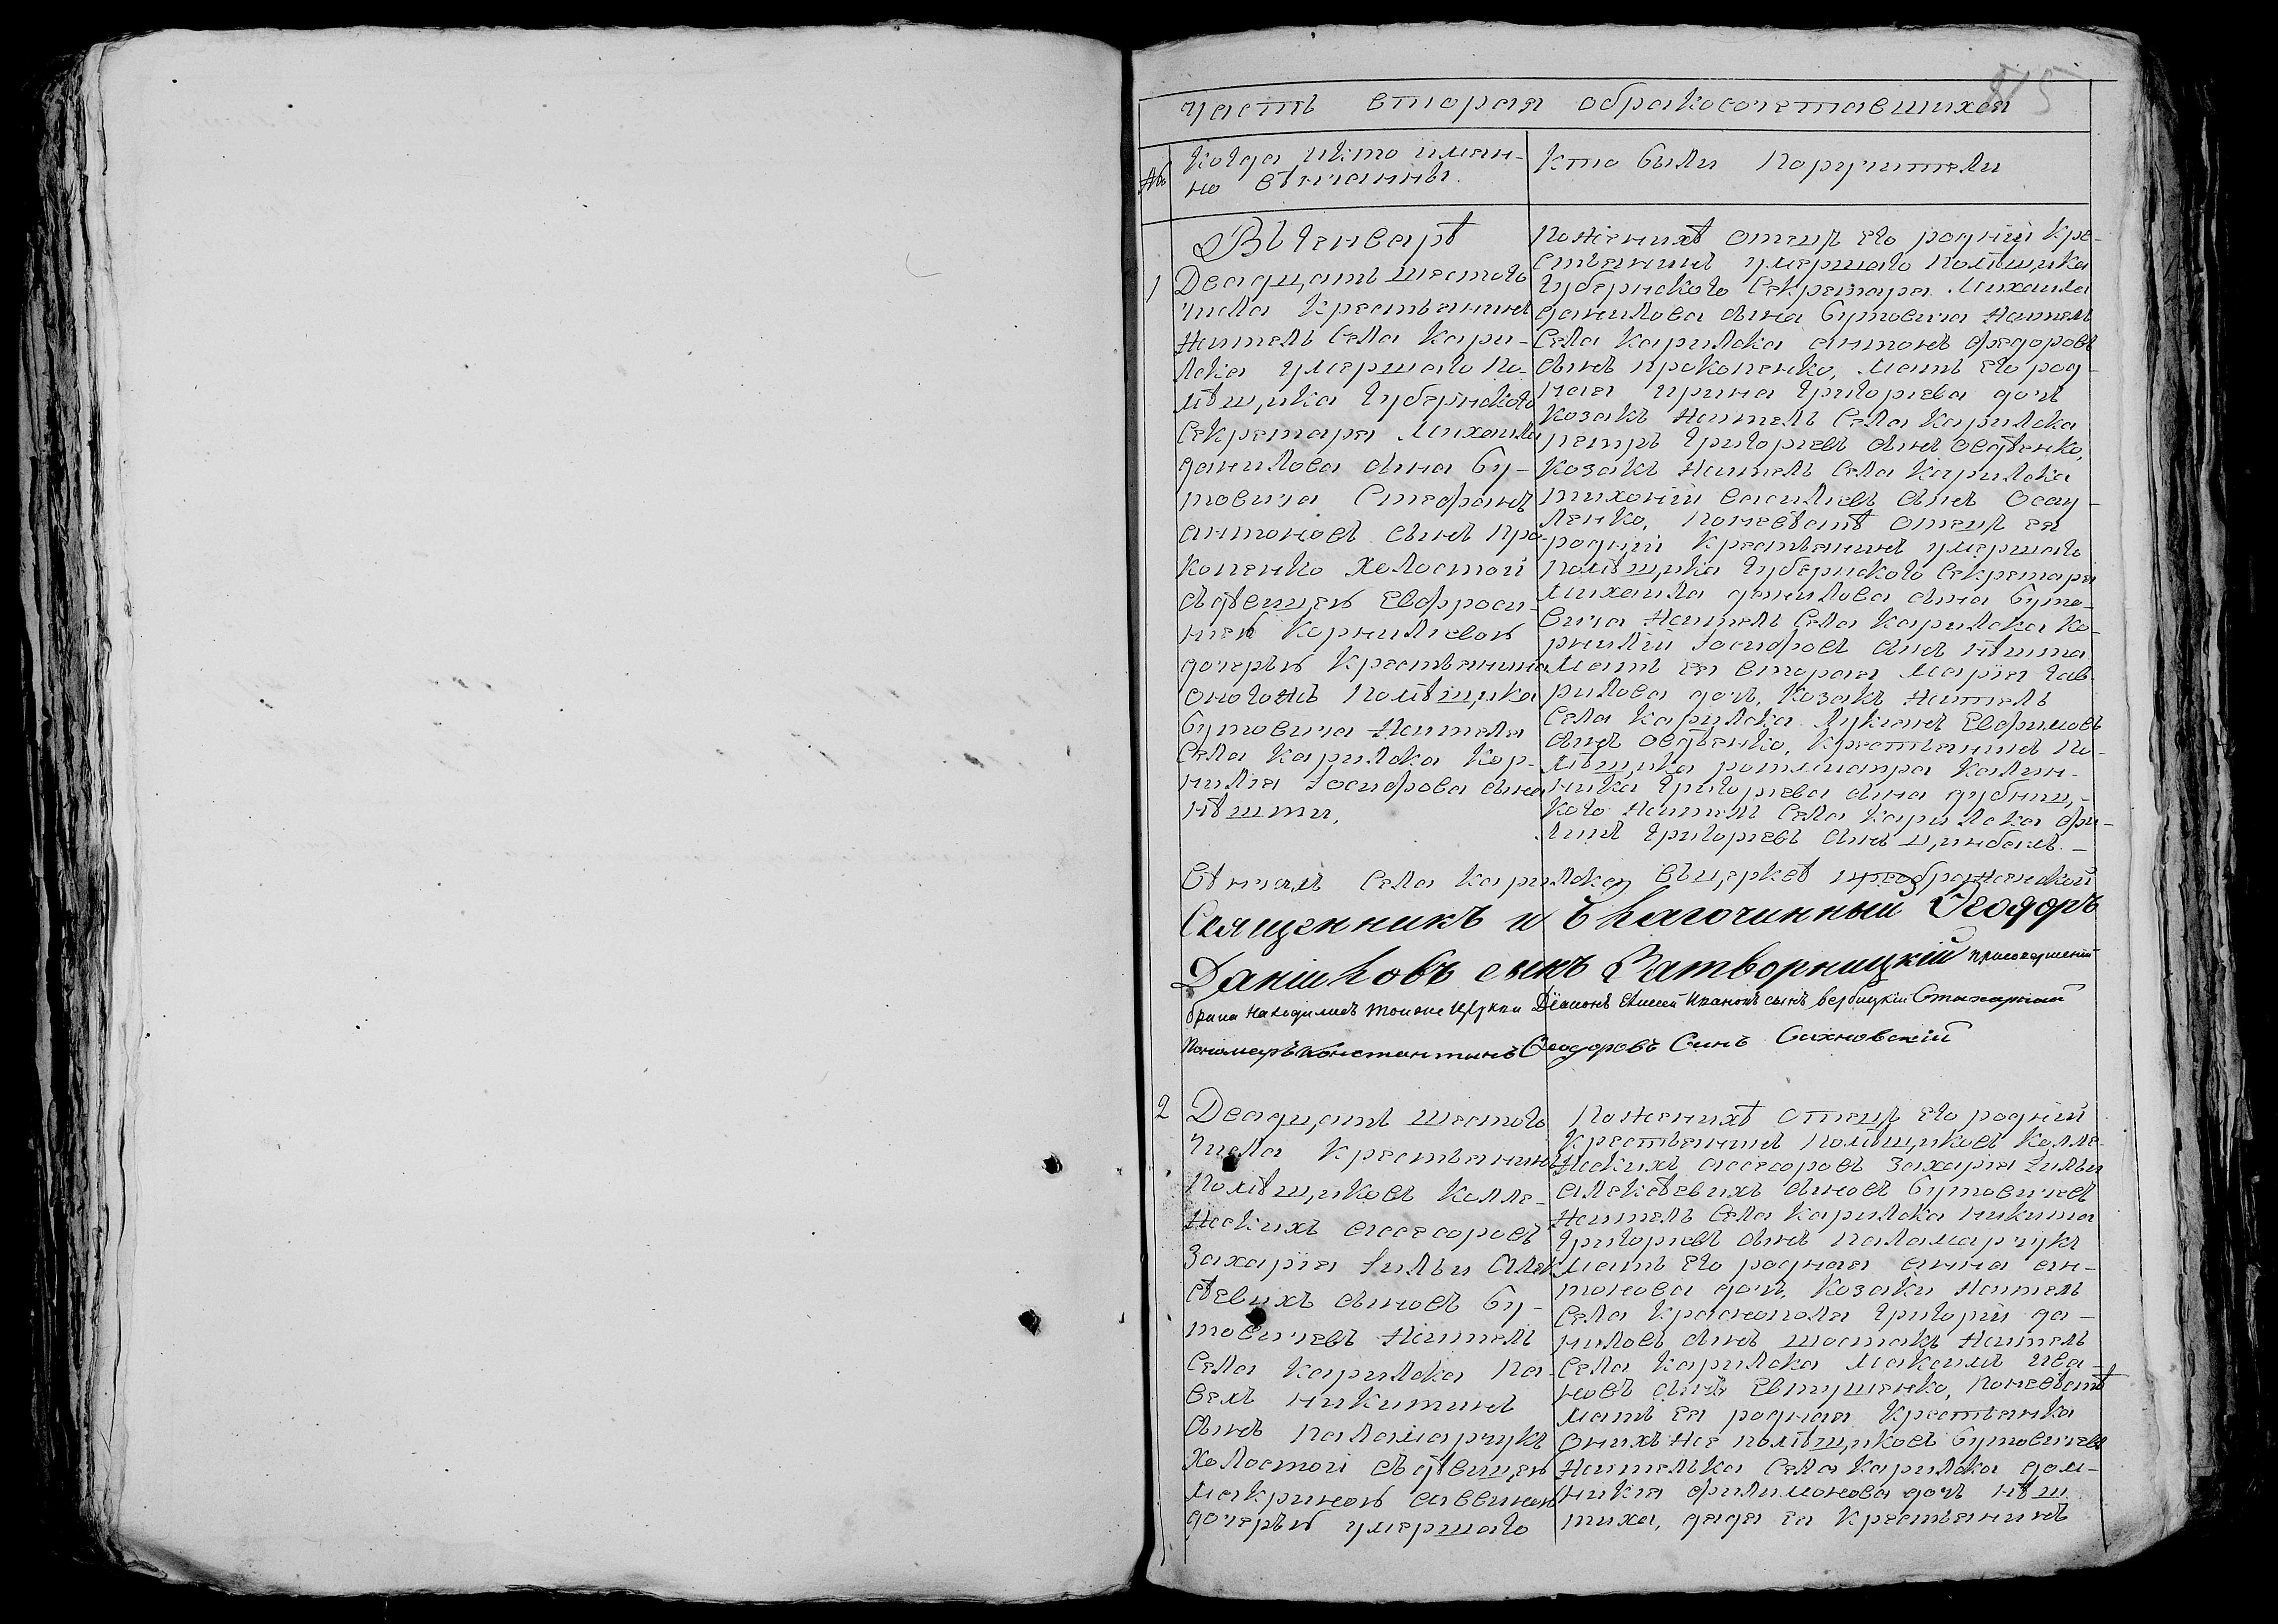 515
часть вторая обракосочетавшихся
№
Когда икто имян-
но вѣнчанны.
Кто были Поручители
Въ Генварѣ
1
Двадцать шестого
числа Крестьянинъ
Житель Села Кари-
лска умершаго По-
мѣщика Губернского
Секретаря Михаила
данилова сына Бу-
товича Стефанъ
антоновъ сынъ про-
копенко Холостой
сдѣвицею Евфроси-
ніею Корниліевою
дочерью Крестьянина
оногожъ Помѣщика
Бутовича Жителя
Села Карилска Кор-
нилія Іосифова сына
нѣшты.
Поженихѣ отецъ его родній Кре-
стьянинъ умершаго Помѣщика
Губернского Секретара Михаила
данилова сына Бутовича Житель
Села Карилска антонъ федоровъ
сынъ прокопенко, мать его род-
ная ирина григорьева дочь
Козакъ Житель Села Карилска
петръ Григоріевъ сынъ овдѣенко,
Козакъ Житель Села Карилска
тихоній василіевъ сынъ осау-
ленко, Поневѣстѣ отецъ ея
родній Крестьянинъ умершаго
помѣщика Губернского Секретаря
Михаила данилова сына Буто-
вича Житель Села Карилска Ко-
рнилій Іосифовъ сынъ нѣшта
мать ея вторая марія гав-
рилова дочь, Козакъ Житель
Села Карилска Лукіанъ Евфимовъ
сынъ овдѣенко, Крестьянинъ По-
мѣщика ротмистра Калин-
ника Григорьева сына дубниц-
кого Житель Села Карилска фи-
липъ Григоріевъ сынъ цимбалъ. —
Вѣнчалъ Села Карилска вьцерквѣ преображенской
Священникъ и благочинный Ѳеодоръ
Даніиловъ сынъ Затворницкій присовершеніи
брака находились тояже церкви Діаконъ Ивановъ сынъ вербицкій Стихарній
Пономарь Константинъ Ѳеодоровъ Синъ Сахновскій
2
Двадцать шестого
числа Крестьянинъ
Помѣщиковъ Колле-
жскихъ ассесоровъ
Захарія Іильи Алек
сѣевихъ сыновъ Бу-
товичевъ Житель
Села Карилска Па-
велъ никитинъ
сынъ паламарчукъ
Холостой сдѣвицею
макриною саввиною
дочерью умершаго
Поженихѣ отецъ его родній
Крестьянинъ Помѣщиковъ Колле-
жскихъ ассесоровъ Захарія Іильи
алексѣевихъ сыновъ Бутовичевъ
Житель Села Карилска никита
Григоріевъ сынъ паламарчукъ
мать его родная анна ан-
тонова дочь, Козаки Житель
Села Краснополя Григорій да-
ниловъ сынъ шостакъ Житель
Села Карилска максимъ ива-
новъ сынъ Евтушенко, Поневѣстѣ
мать ея родная Крестьянка
онихъ же помѣщиковъ Бутовичевъ
Жителька Села Карилска дом-
никія филимонова дочь нѣш
тиха, дядя ея Крестьянинъ